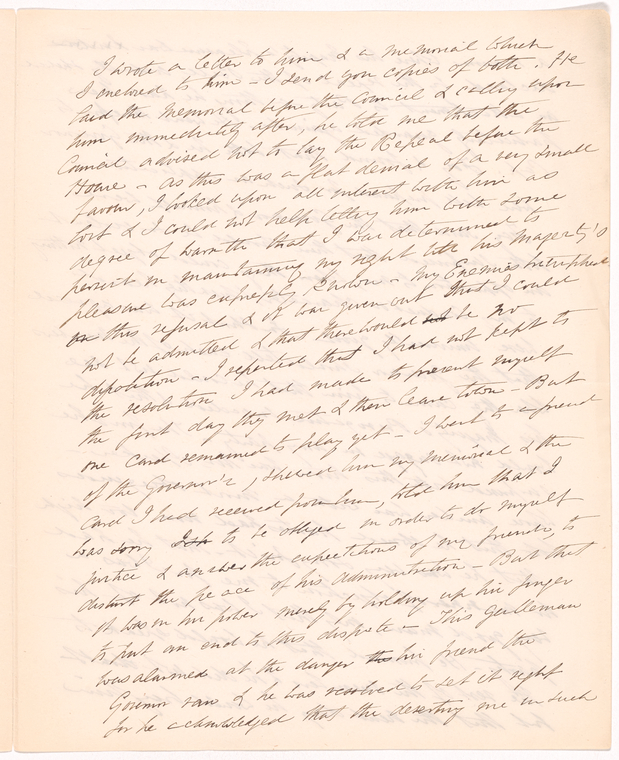 I wrote a letter to him & a memorial which
I enclosed to him – I send you copies of both. He
laid the memorial before the Council & calling upon
him immediately after, he told me that the
Council advised not to lay the Repeal before the
House – as this was a flat denial of a very small
favour, I looked upon all interest with him as
lost & I could not help letting him with some
degree of warmth that I was determined to
persist in maintaining my right till his Majesty's
pleasure was expressly known – my Enemies triumphed
on this refusal & it was given out that I could
not be admitted & that there would not be no
disposition – I reported that I had not kept to
the resolution I had made to present myself
the first day they met & then leave town – But
one Card remained to play yet – I went to a friend
of the Governor's, shewed him my memorial & the
Card I had received from him, told him that I
was sorry to be obliged in order to do myself
justice & answer the expectations of my friends, to
disturb the peace of his administration – But that
it was in his power merely by holding up his finger
to put an end to this dispute – This gentleman
was alarmed at the danger his friend the
Governor ran & he was resolved to set it right
for he acknowledged that the deserting me in such